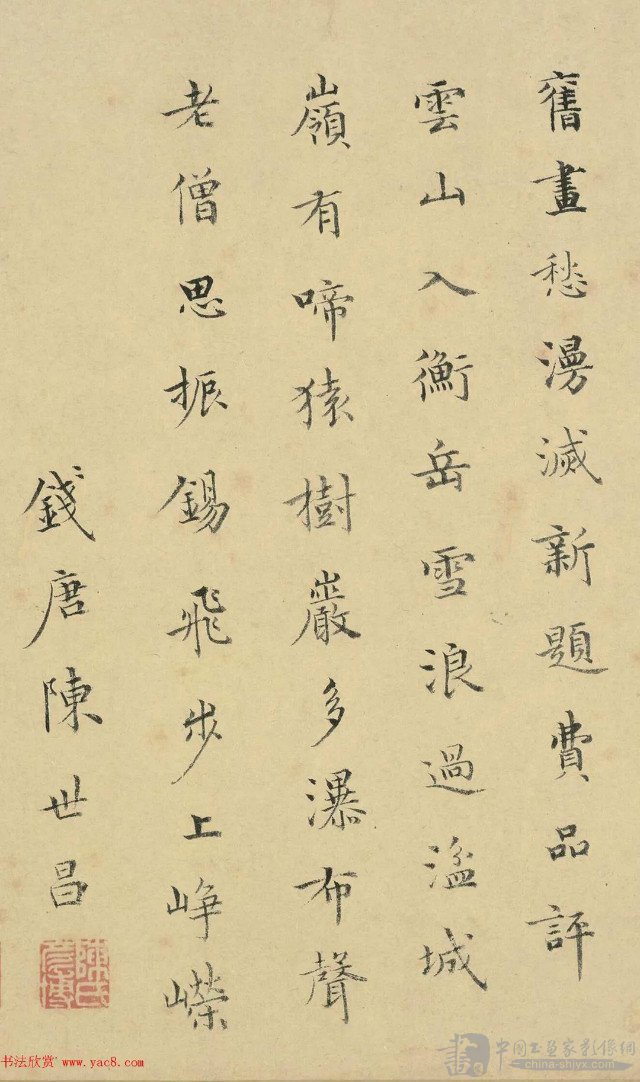 舊畫愁漫滅新題費品評
雲山入衡岳雪浪過湓城
嶺有啼猿樹巖多瀑布聲
老僧思振錫飛步上崢嶸
錢唐陳世昌
陳氏彥博
书法欣赏 www.yac8.com
中国书画家影像網
china-shiyx.com